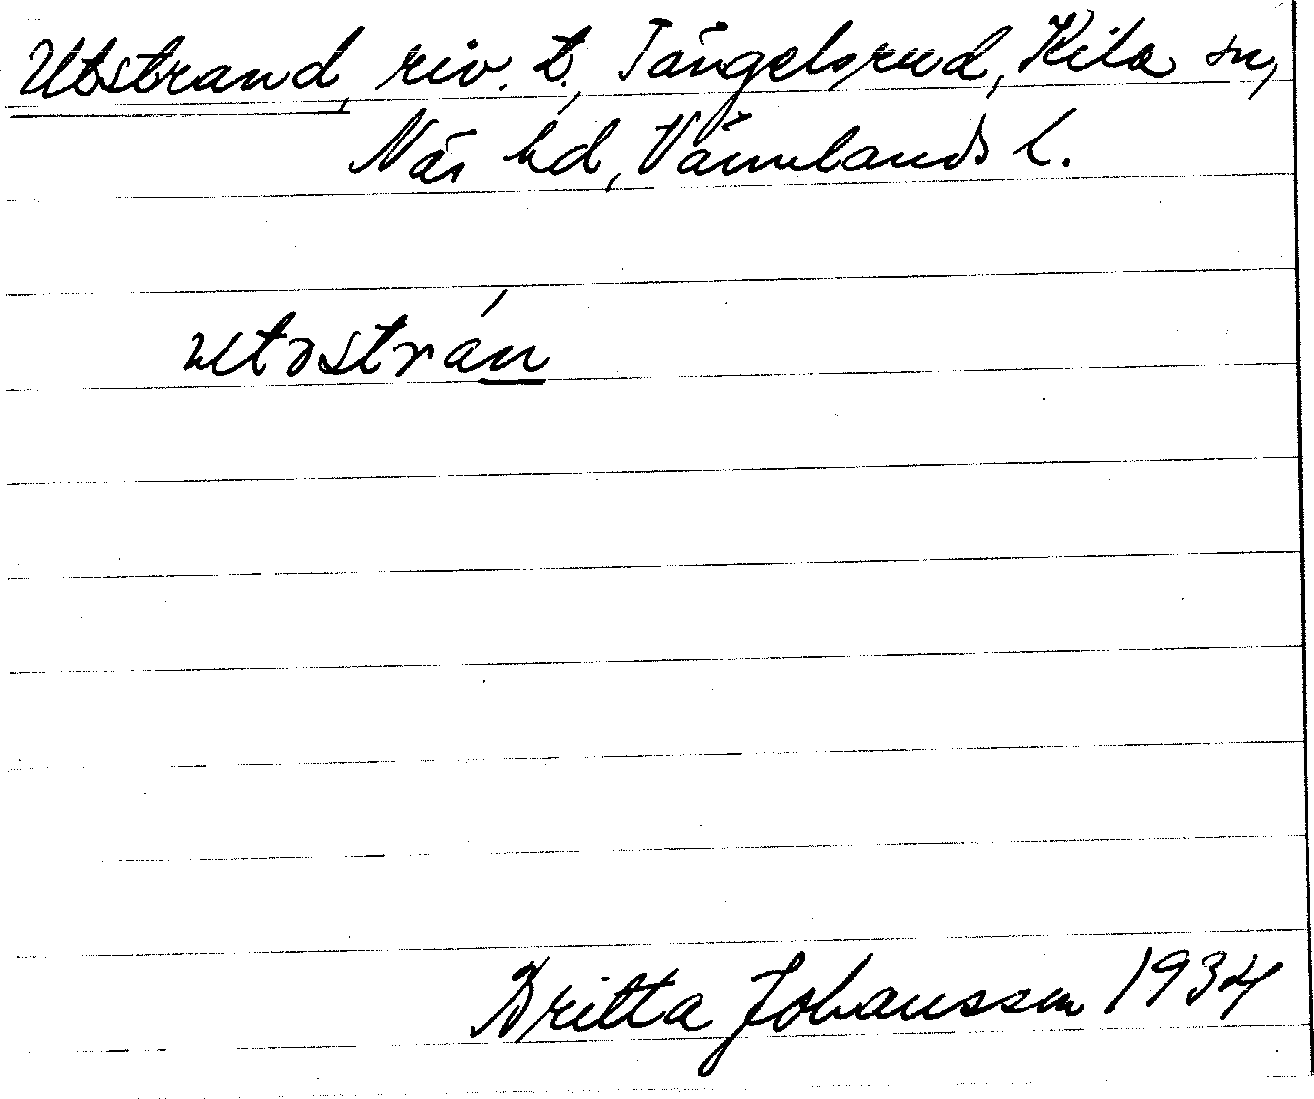 Utstrand, riv. t., Tängelsrud, Kila sn,
Näs hd, Värmlands l.
utstrán
Britta Johansson 1934